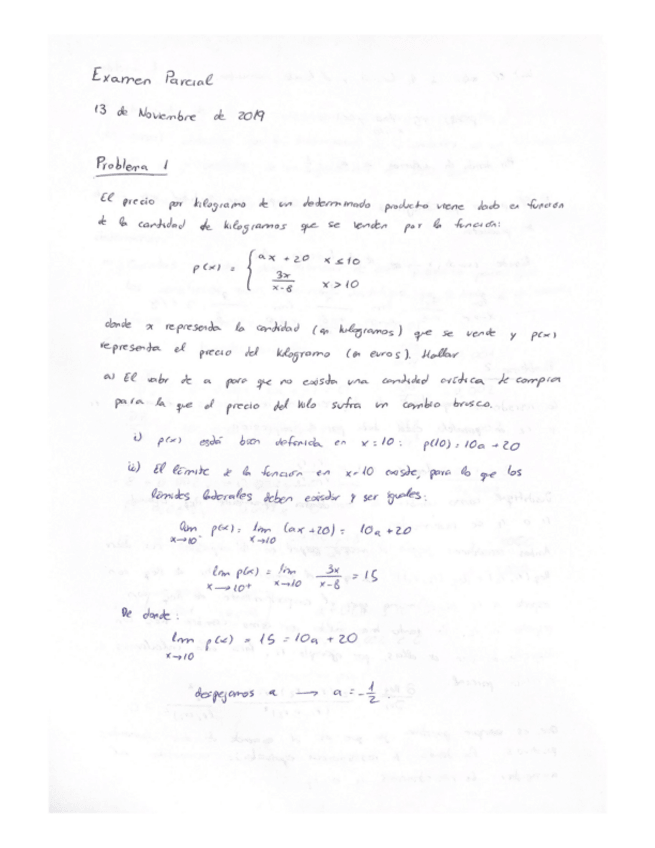 Examen Parcial
13 de Noviembre de 2019
Problema 1
El precio por kilogramo de un determinado producto viene dado en función
de la cantidad de kilogramos que se venden por la función:
p(x) = { ax + 20 x ≤ 10
3x/(x-8) x > 10
donde x representa la cantidad (en kilogramos) que se vende y p(x)
representa el precio del kilogramo (en euros). Hallar
a) El valor de a para que no exista una cantidad crítica de compra
para la que el precio del kilo sufra un cambio brusco.
i) p(x) está bien definida en x=10: p(10) = 10a + 20
ii) El límite de la función en x=10 existe, para lo que los
límites laterales deben existir y ser iguales:
lim x→10⁻ p(x) = lim x→10 (ax+20) = 10a + 20
lim x→10⁺ p(x) = lim x→10 3x/(x-8) = 15
De donde:
lim x→10 p(x) = 15 = 10a + 20
despejamos a → a = -1/2.